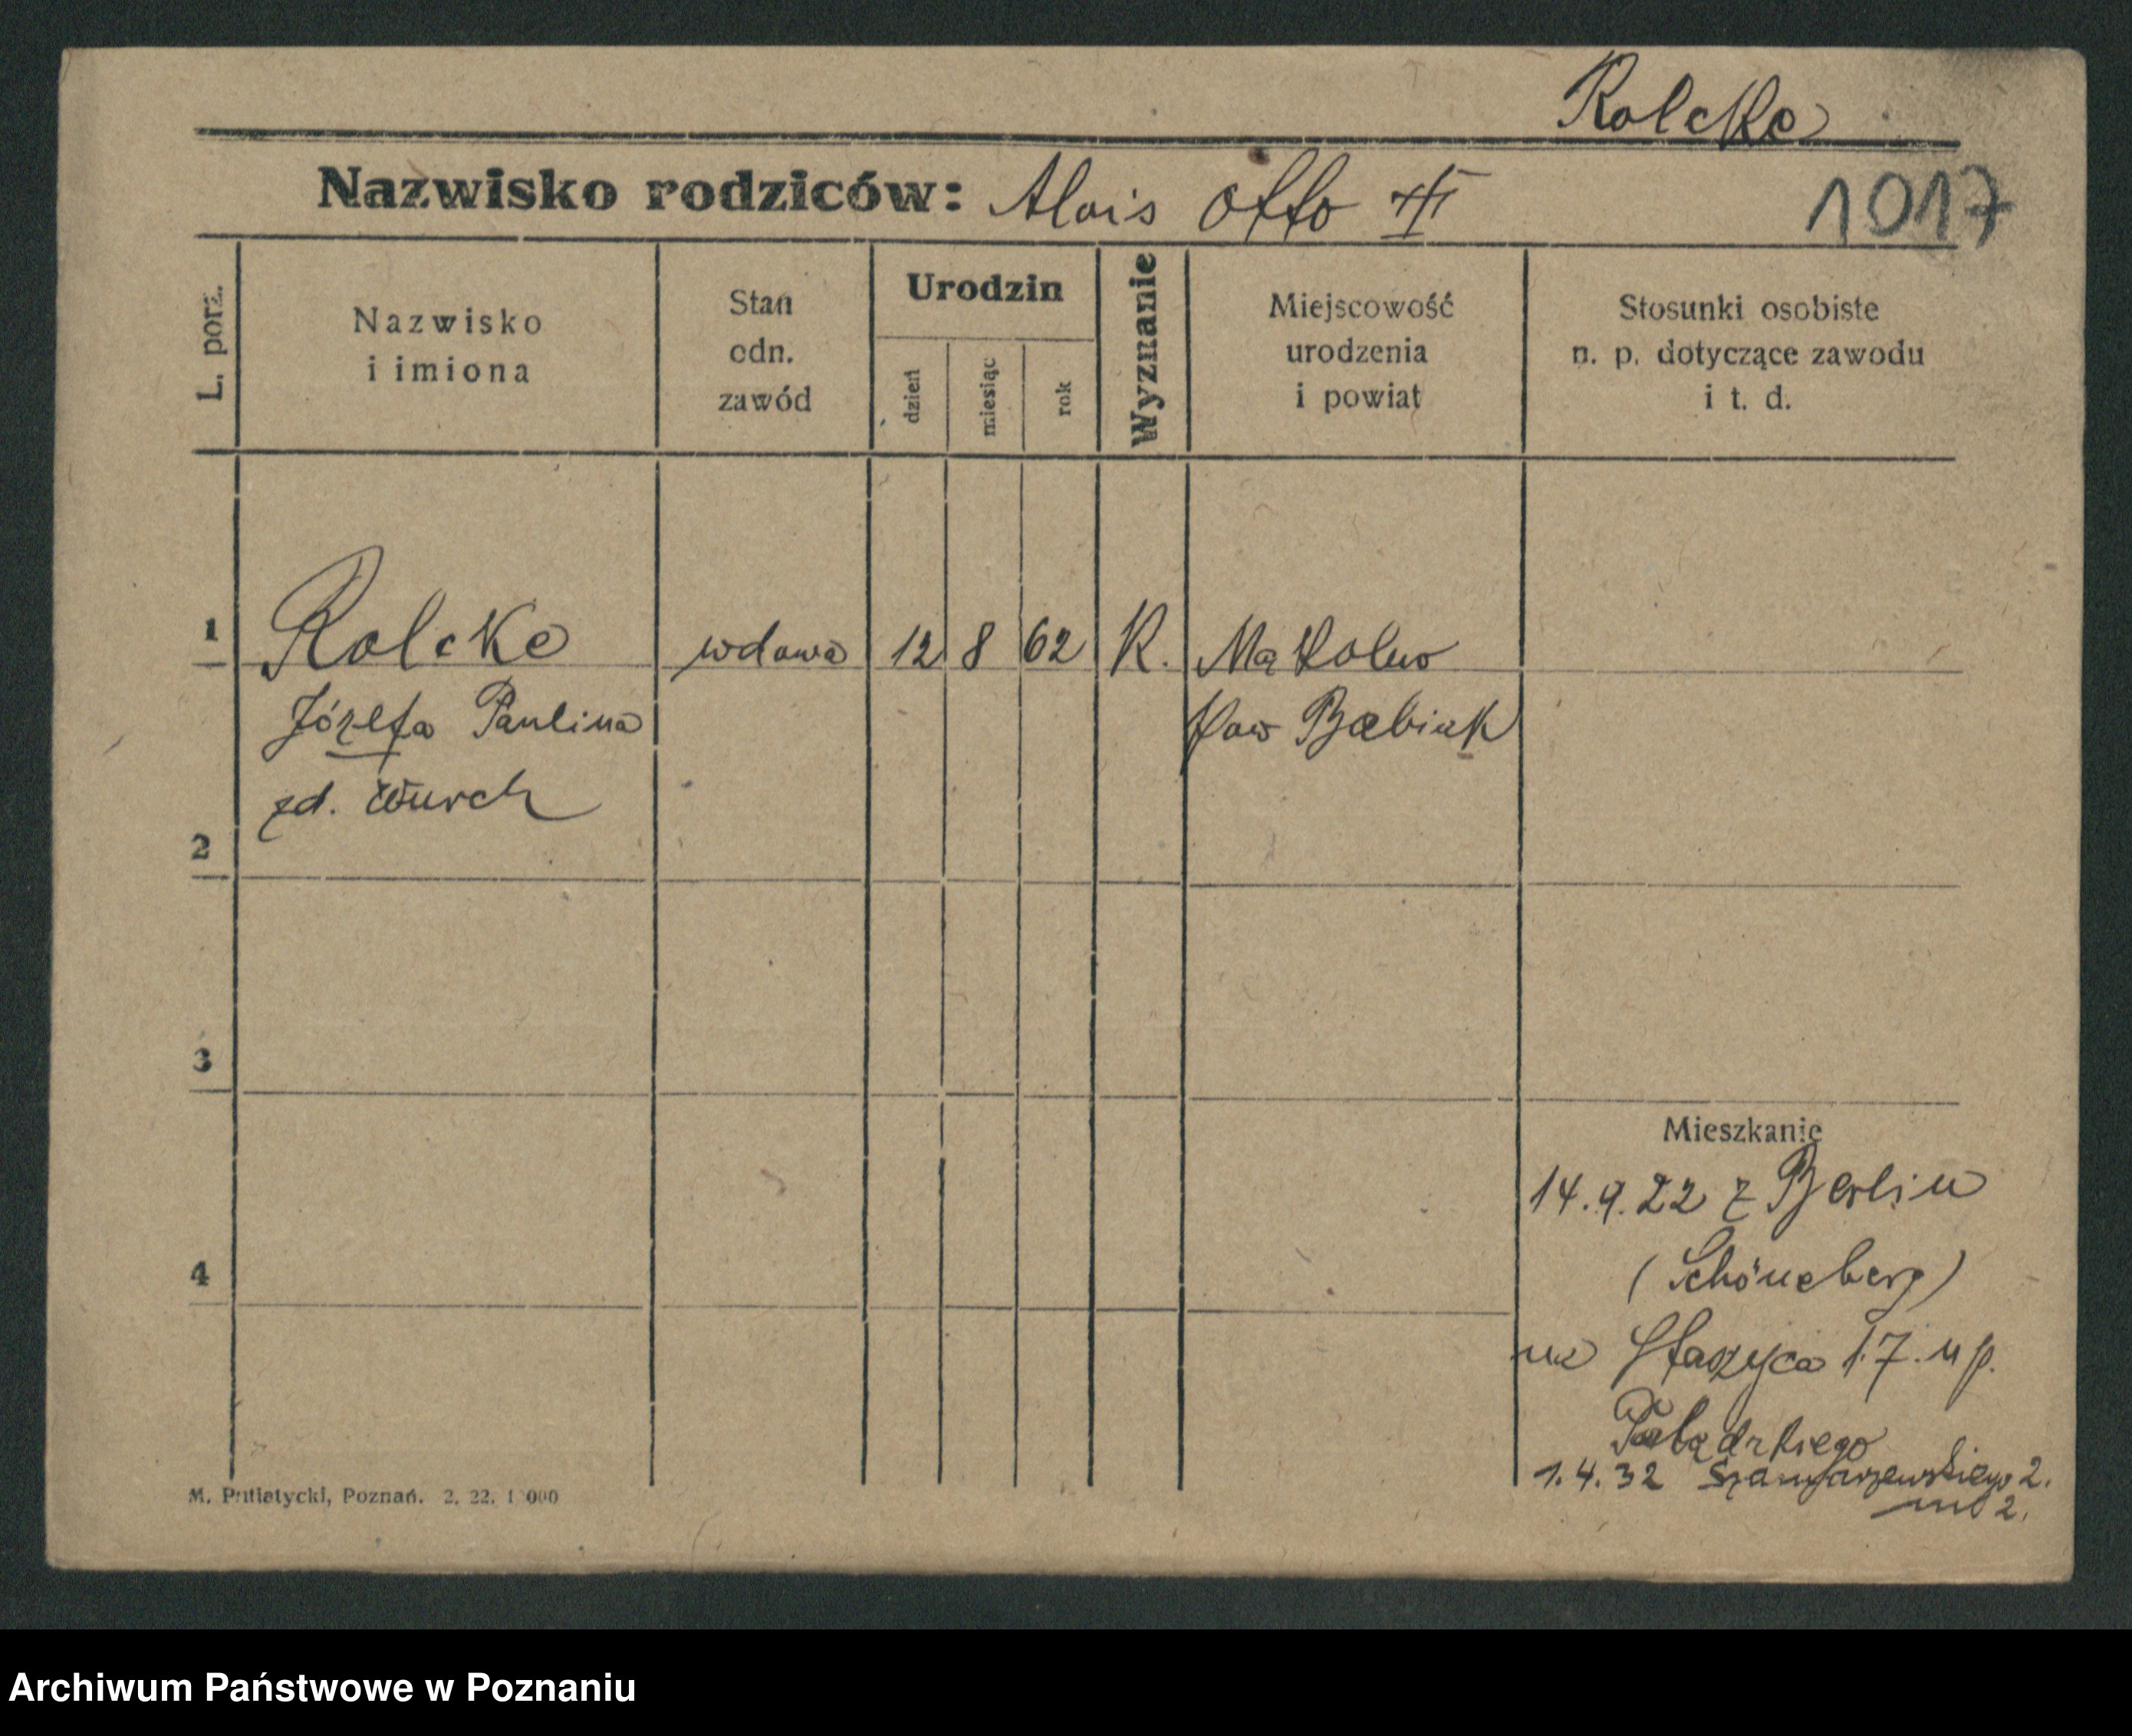 Rolcke
Nazwisko rodziców: Alois Otto
1017
L. porz.
Nazwisko
i imiona
Stan
odn.
zawód
Urodzin
dzień
miesiąc
rok
Wyznanie
Miejscowość
urodzenia
i powiat
Stosunki osobiste
n. p. dotyczące zawodu
i t. d.
1 Rolcke wdowa 12 8 62 K. Mąkolno
Józefa Paulina pow Babiak
zd. Wurch
2
3
4
Mieszkanie
14.9.22 z Berlin
(Schöneberg)
na Staszyca 17. u p.
1.4.32 Szamarzewskiego 2.
M. Putiatycki, Poznań. 2. 22. 1000
Archiwum Państwowe w Poznaniu